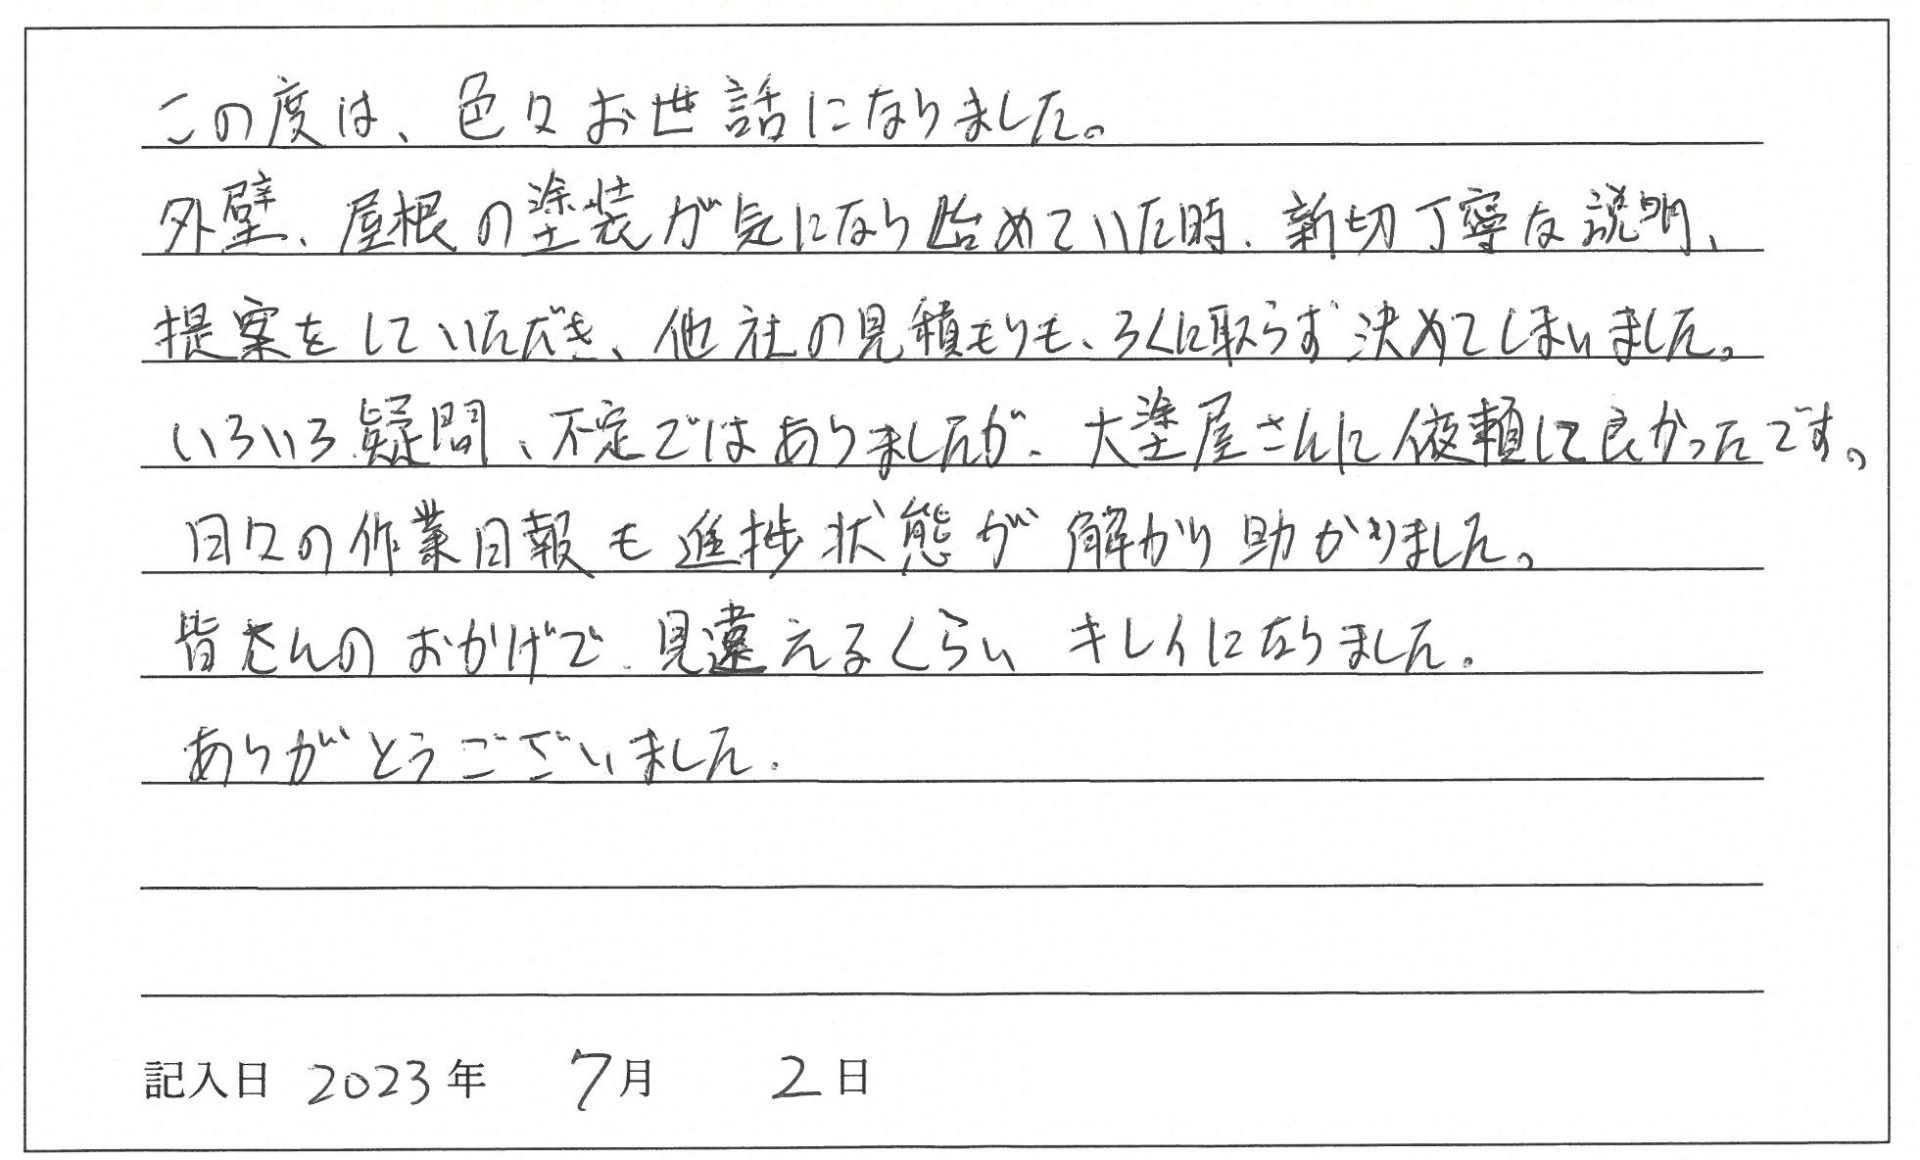 この度は、色々お世話になりました。
外壁、屋根の塗装が気になり始めていた時、新切丁寧な説明、
提案をしていただき、他社の見積もりも、ろくに取らず決めてしまいました。
いろいろ疑問、不定ではありましたが、大塗屋さんに依頼して良かったです。
日々の作業日報も進捗状態が解かり助かりました。
皆さんのおかげで、見違えるくらい キレイになりました。
ありがとうございました。
記入日 2023年 7月 2日